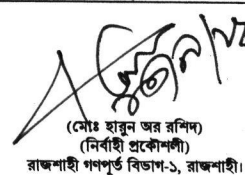 (মোঃ হারুন অর রশিদ)
(নির্বাহী প্রকৌশলী)
রাজশাহী গণপূর্ত বিভাগ-১, রাজশাহী।